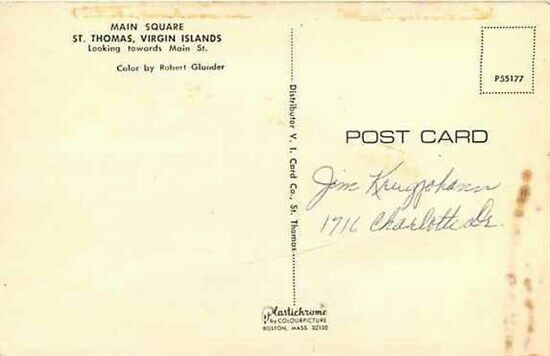 MAIN SQUARE
ST. THOMAS, VIRGIN ISLANDS
Looking towards Main St.
Color by Robert Glander
Distributor V. I. Card Co., St. Thomas
P55177
POST CARD
Jim
1716 Charlotte Dr.
Plastichrome
by COLOURPICTURE
BOSTON, MASS. 02130